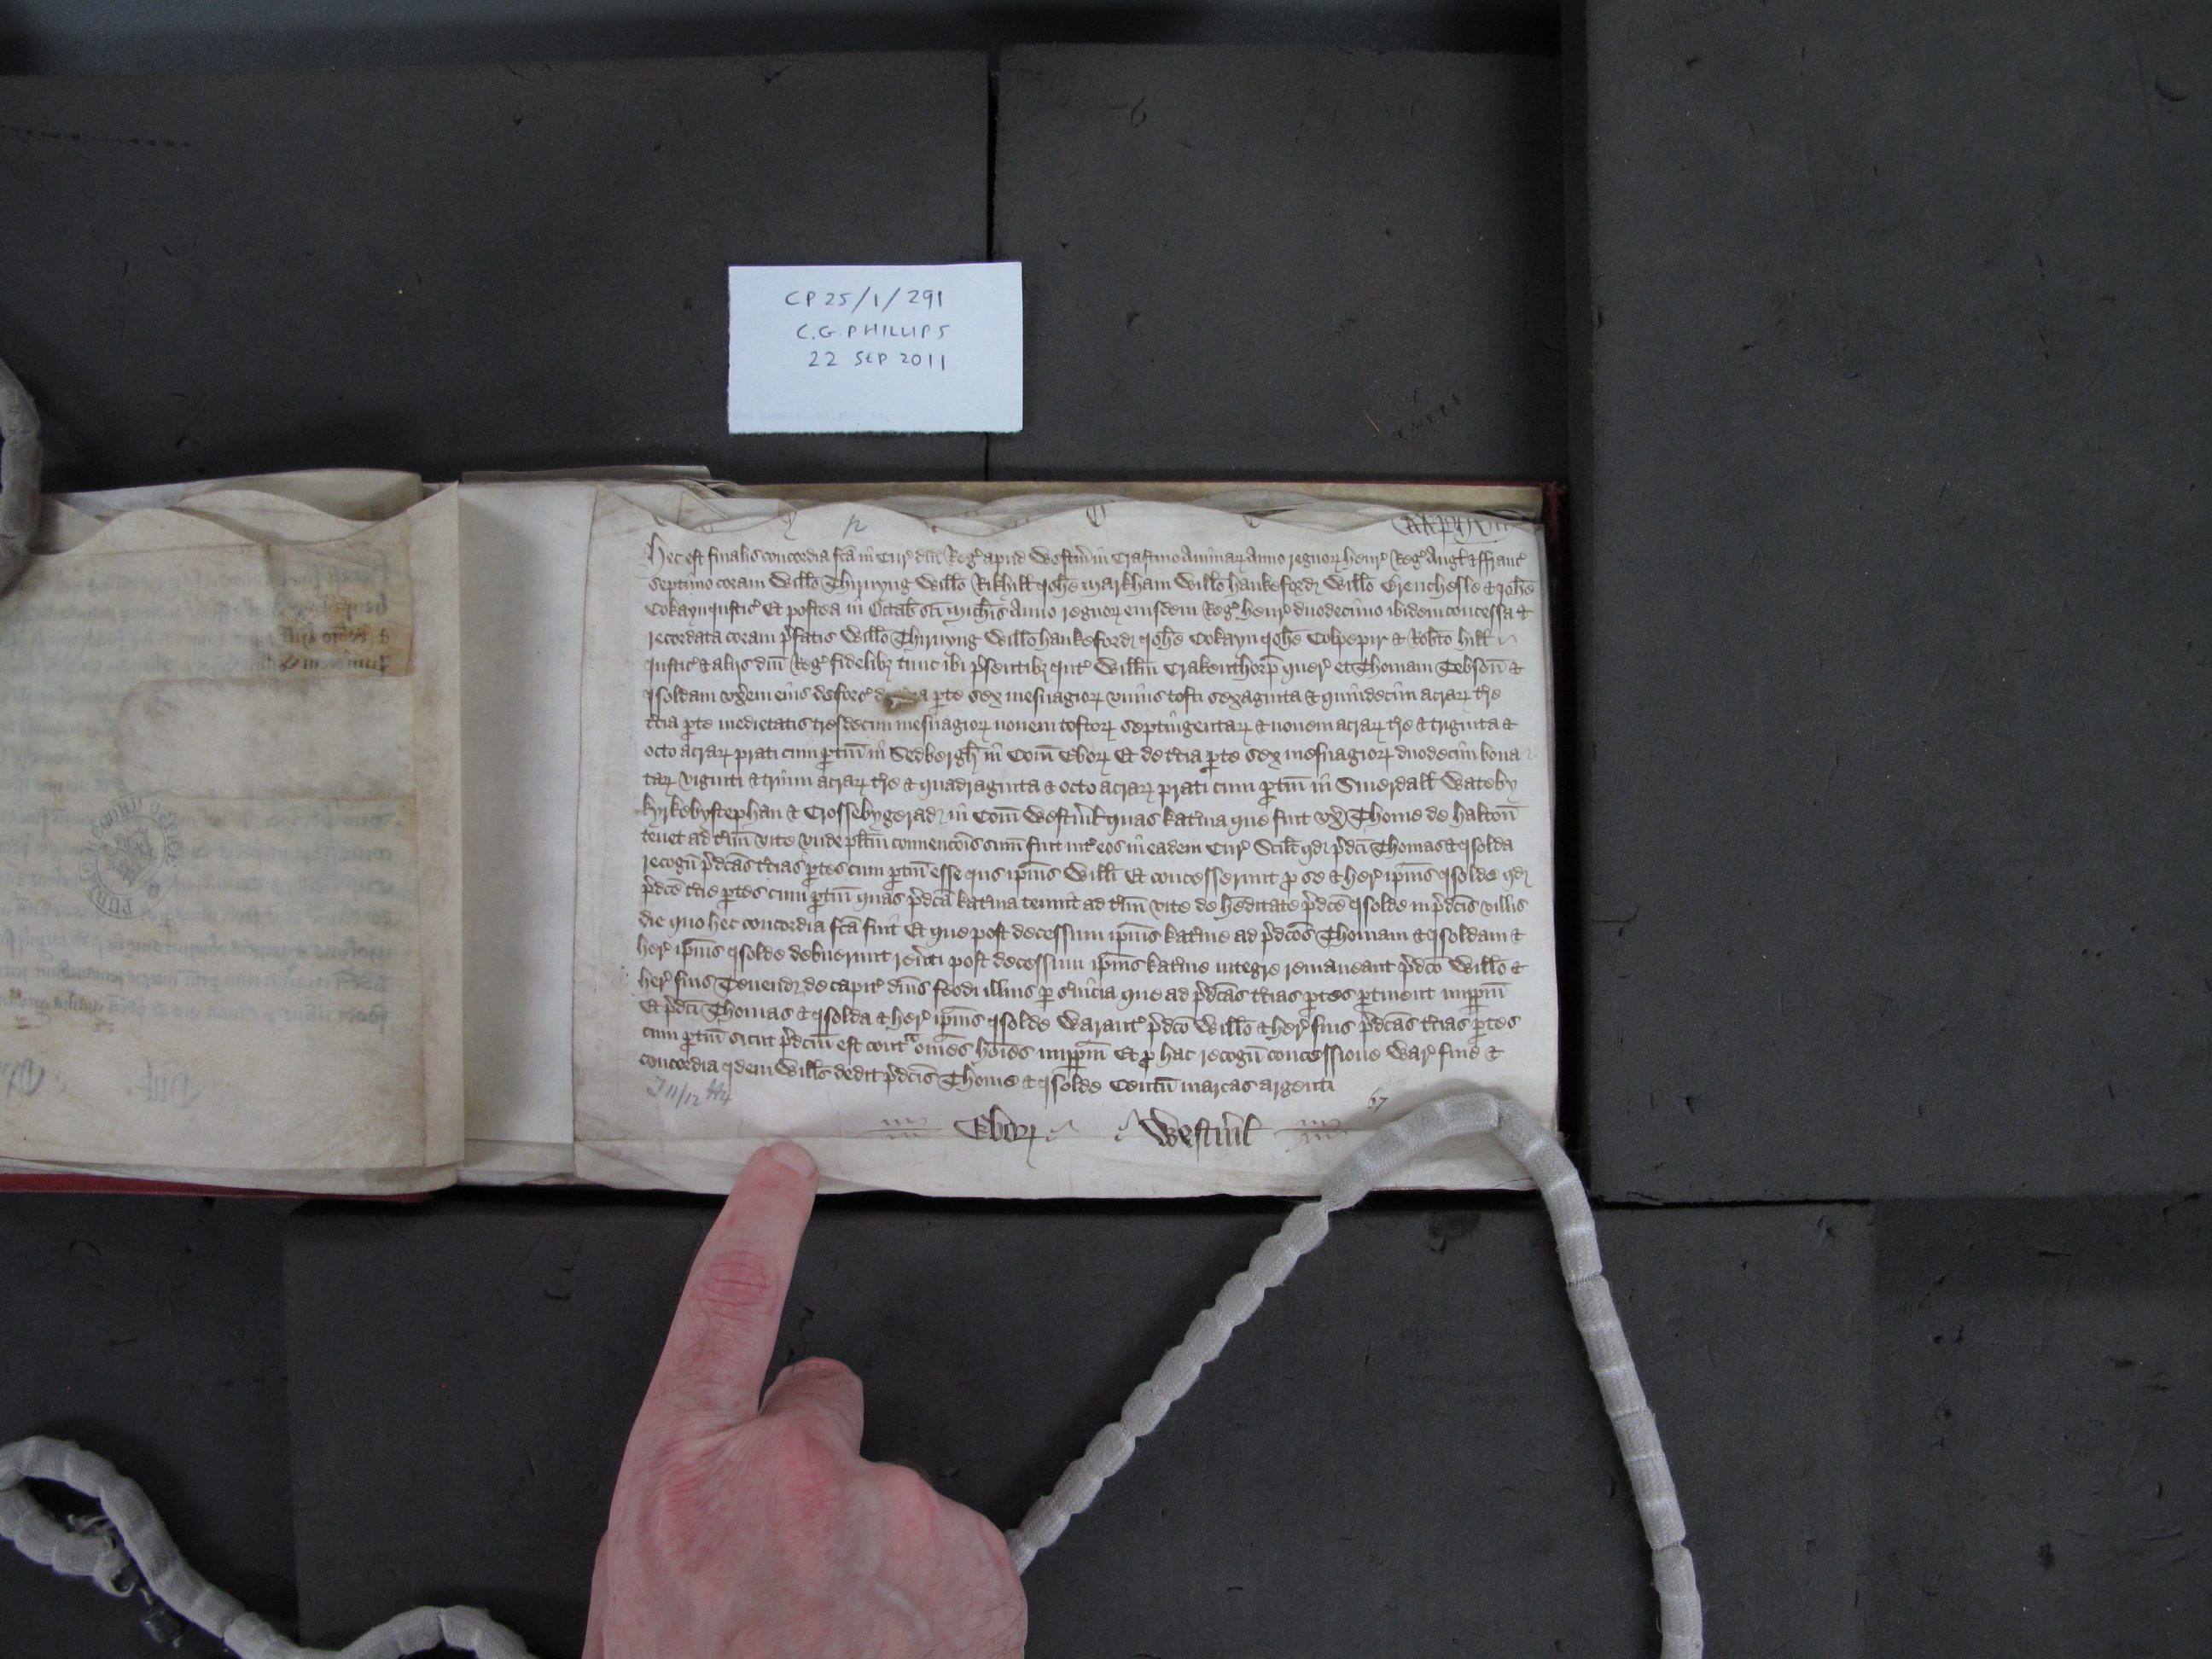 CP 25/1/291
C.G. PHILLIPS
22 SEP 2011
Hec est finalis concordia fc̄a in Cur' dn̄i Reg' apud Westm̄ in Crastino Animaꝝ Anno regnoꝝ Henr' Reg' Angl' & ffranc'
septimo coram Will̄o Thirnyng Will̄o Rikhill' Joh̄e Markham Will̄o Hankeford Will̄o Brenchesle & Joh̄e
Cokayn Justic' Et postea in Octab' sc̄i Mich̄is Anno regnoꝝ eiusdem Reg' Henr' duodecimo ibidem concessa &
recordata coram p̄fatis Will̄o Thirnyng Will̄o Hankeford Joh̄e Cokayn Joh̄e Colpepir & Rob̄to Hill'
Justic' & alijs dn̄i Reg' fidelibꝫ tunc ibi p̄sentibꝫ Int' Will̄m Crakenthorp quer' et Thomam Tebson̄ &
Isoldam vx̄em eius deforc' de a ꝑte sex mesuagioꝝ vnius tofti sexaginta & quindecim acraꝝ tr̄e
tc̄ia ꝑte medietatis tresdecim mesuagioꝝ nouem toftoꝝ septingentaꝝ & nouem acraꝝ tr̄e & triginta &
octo acraꝝ prati cum ꝑtin̄ in Sedbergh in Com̄ Eboꝝ Et de tc̄ia ꝑte sex mesuagioꝝ duodecim boua
taꝝ viginti & trium acraꝝ tr̄e & quadraginta & octo acraꝝ prati cum ꝑtin̄ in Smerdall' Wateby
kyrkebystephan & Crossebygerad in Com̄ Westm̄l' quas kat'ina que fuit vx̄ Thome de Halton̄
tenet ad t'm̄ vite vnde pl̄itm conuenc̄ois sum̄ fuit int' eos in eadem Cur' Scil't qd p̄dc̄i Thomas & Isolda
recogn̄ p̄dc̄as tc̄ias ꝑtes cum ꝑtin̄ esse ius ip̄ius Will̄i Et concesserunt ꝓ se & her' ip̄ius Isolde qd
p̄dc̄e tc̄ie ꝑtes cum ꝑtin̄ quas p̄dc̄a kat'ina tenuit ad t'm̄ vite de hēditate p̄dc̄e Isolde in p̄dc̄is villis
die quo hec concordia fc̄a fuit Et que post decessum ip̄ius kat'ine ad p̄dc̄os Thomam & Isoldam &
her' ip̄ius Isolde debuerunt reu'ti post decessum ip̄ius kat'ine integre remaneant p̄dc̄o Will̄o &
her' suis Tenend de capit' dn̄is feodi illius ꝑ s'uicia que ad p̄dc̄as tc̄ias ꝑtes ꝑtinent imꝑpm̄
Et p̄dc̄i Thomas & Isolda & her' ip̄ius Isolde Warant' p̄dc̄o Will̄o & her' suis p̄dc̄as tc̄ias ꝑtes
cum ꝑtin̄ sicut p̄dc̄m est contᵃ om̄es hōies imꝑpm̄ Et ꝓ hac recogn̄ concessione War' fine &
concordia idem Will̄s dedit p̄dc̄is Thome & Isolde Centū marcas argenti
J 11/12 H4
67
Eboꝝ Westm̄l'
PUBLIC RECORD OFFICE